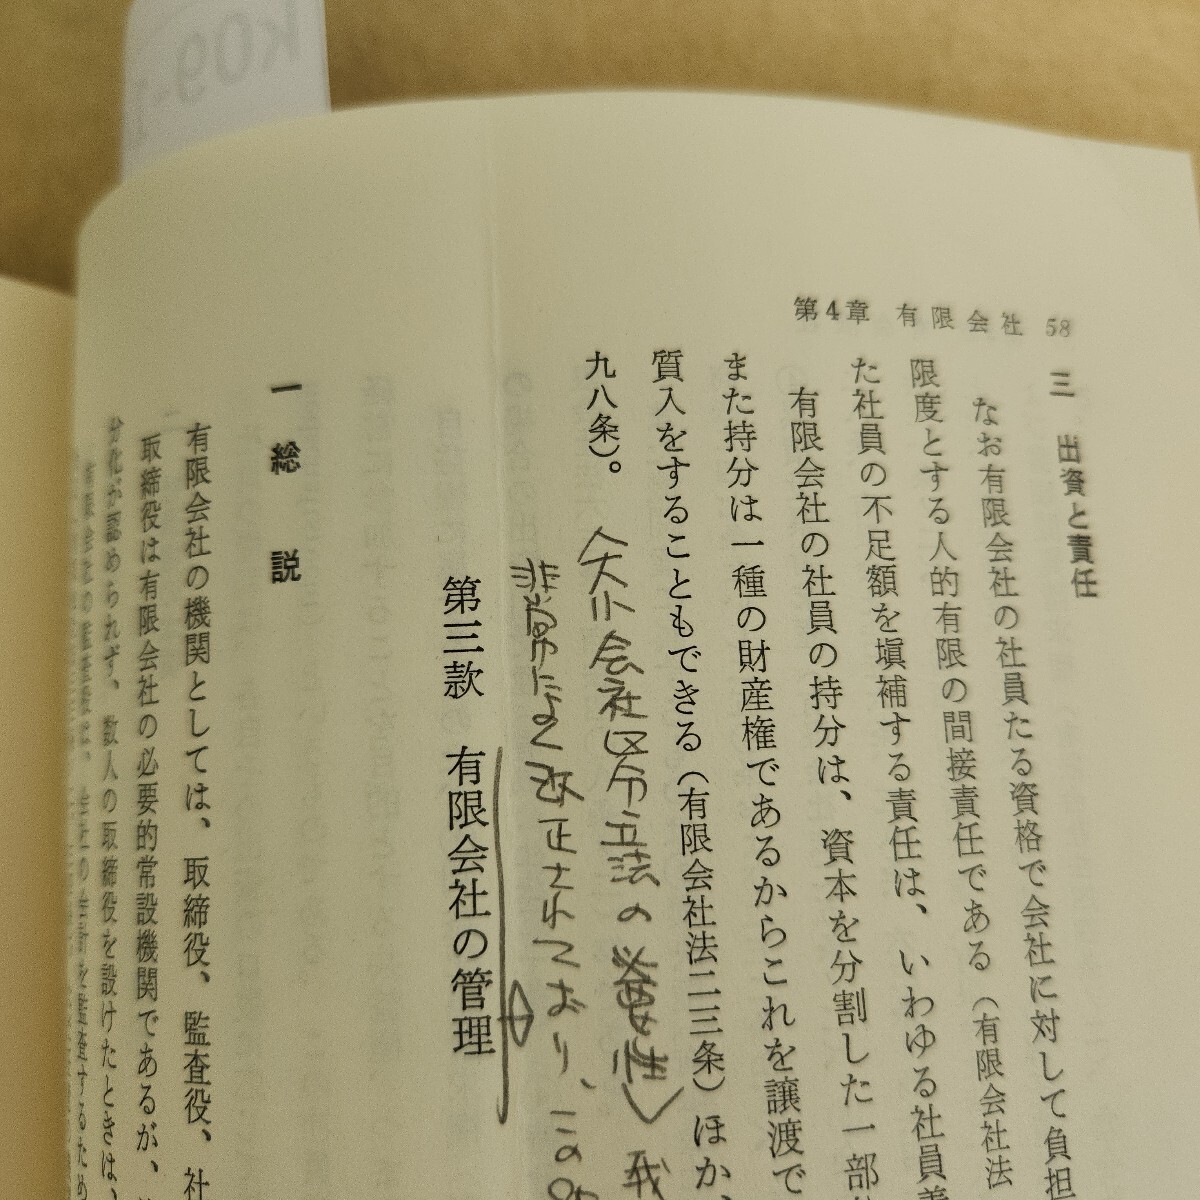 第4章 有限会社 58
三 出資と責任
なお有限会社の社員たる資格で会社に対して負担
限度とする人的有限の間接責任である(有限会社法
た社員の不足額を塡補する責任は、いわゆる社員義
有限会社の社員の持分は、資本を分割した一部
また持分は一種の財産権であるからこれを譲渡で
質入をすることもできる(有限会社法二三条)ほか、
九八条)。
大小会社区分立法の必要性 我
非常によく改正されており、この
第三款 有限会社の管理
一 総説
有限会社の機関としては、取締役、監査役、社
取締役は有限会社の必要的常設機関であるが、
分化が認められず、数人の取締役を設けたときは、